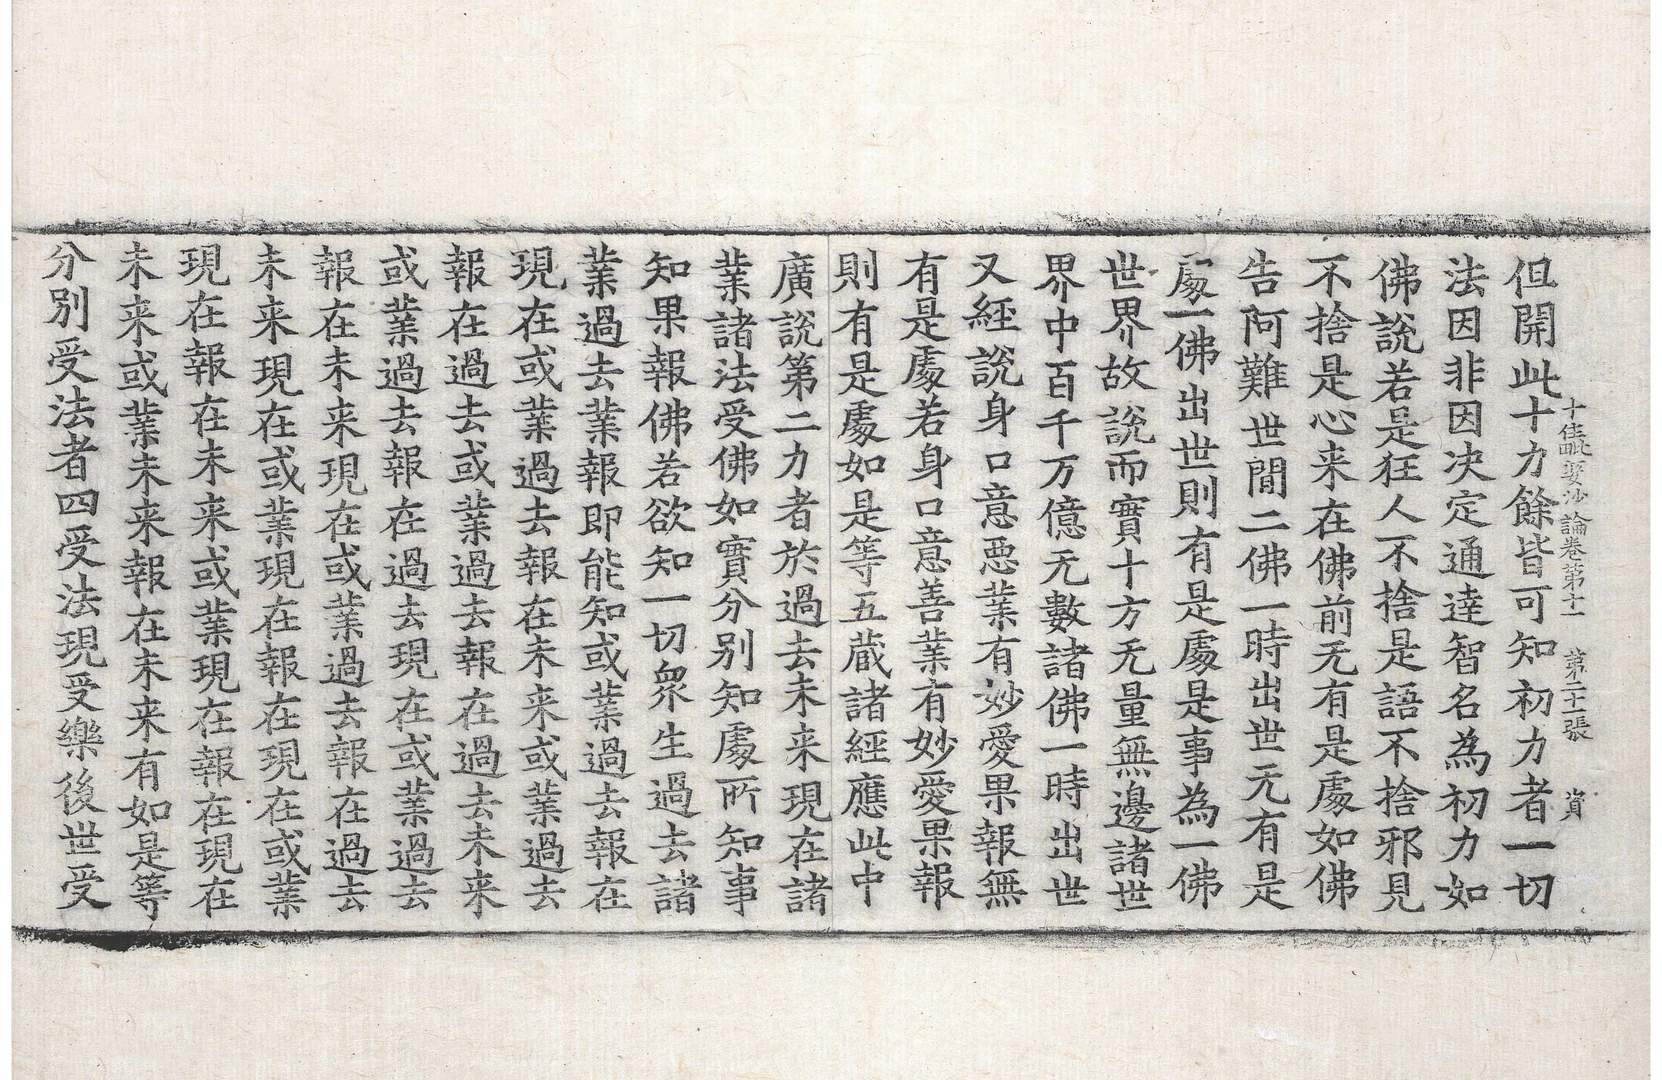 十住毗婆沙論卷第十一 第二十一張 賞
但開此十力餘皆可知初力者一切
法因非因决定通達智名為初力如
佛說若是狂人不捨是語不捨邪見
不捨是心来在佛前无有是處如佛
告阿難世間二佛一時出世无有是
處一佛出世則有是處是事為一佛
世界故說而實十方无量無邊諸世
界中百千万億无數諸佛一時出世
又經說身口意惡業有妙愛果報無
有是處若身口意善業有妙愛果報
則有是處如是等五藏諸經應此中
廣說第二力者於過去未来現在諸
業諸法受佛如實分別知處所知事
知果報佛若欲知一切衆生過去諸
業過去業報即能知或業過去報在
現在或業過去報在未来或業過去
報在過去或業過去報在過去未来
或業過去報在過去現在或業過去
報在未来現在或業過去報在過去
未来現在或業現在報在現在或業
現在報在未来或業現在報在現在
未来或業未来報在未来有如是等
分別受法者四受法現受樂後世受